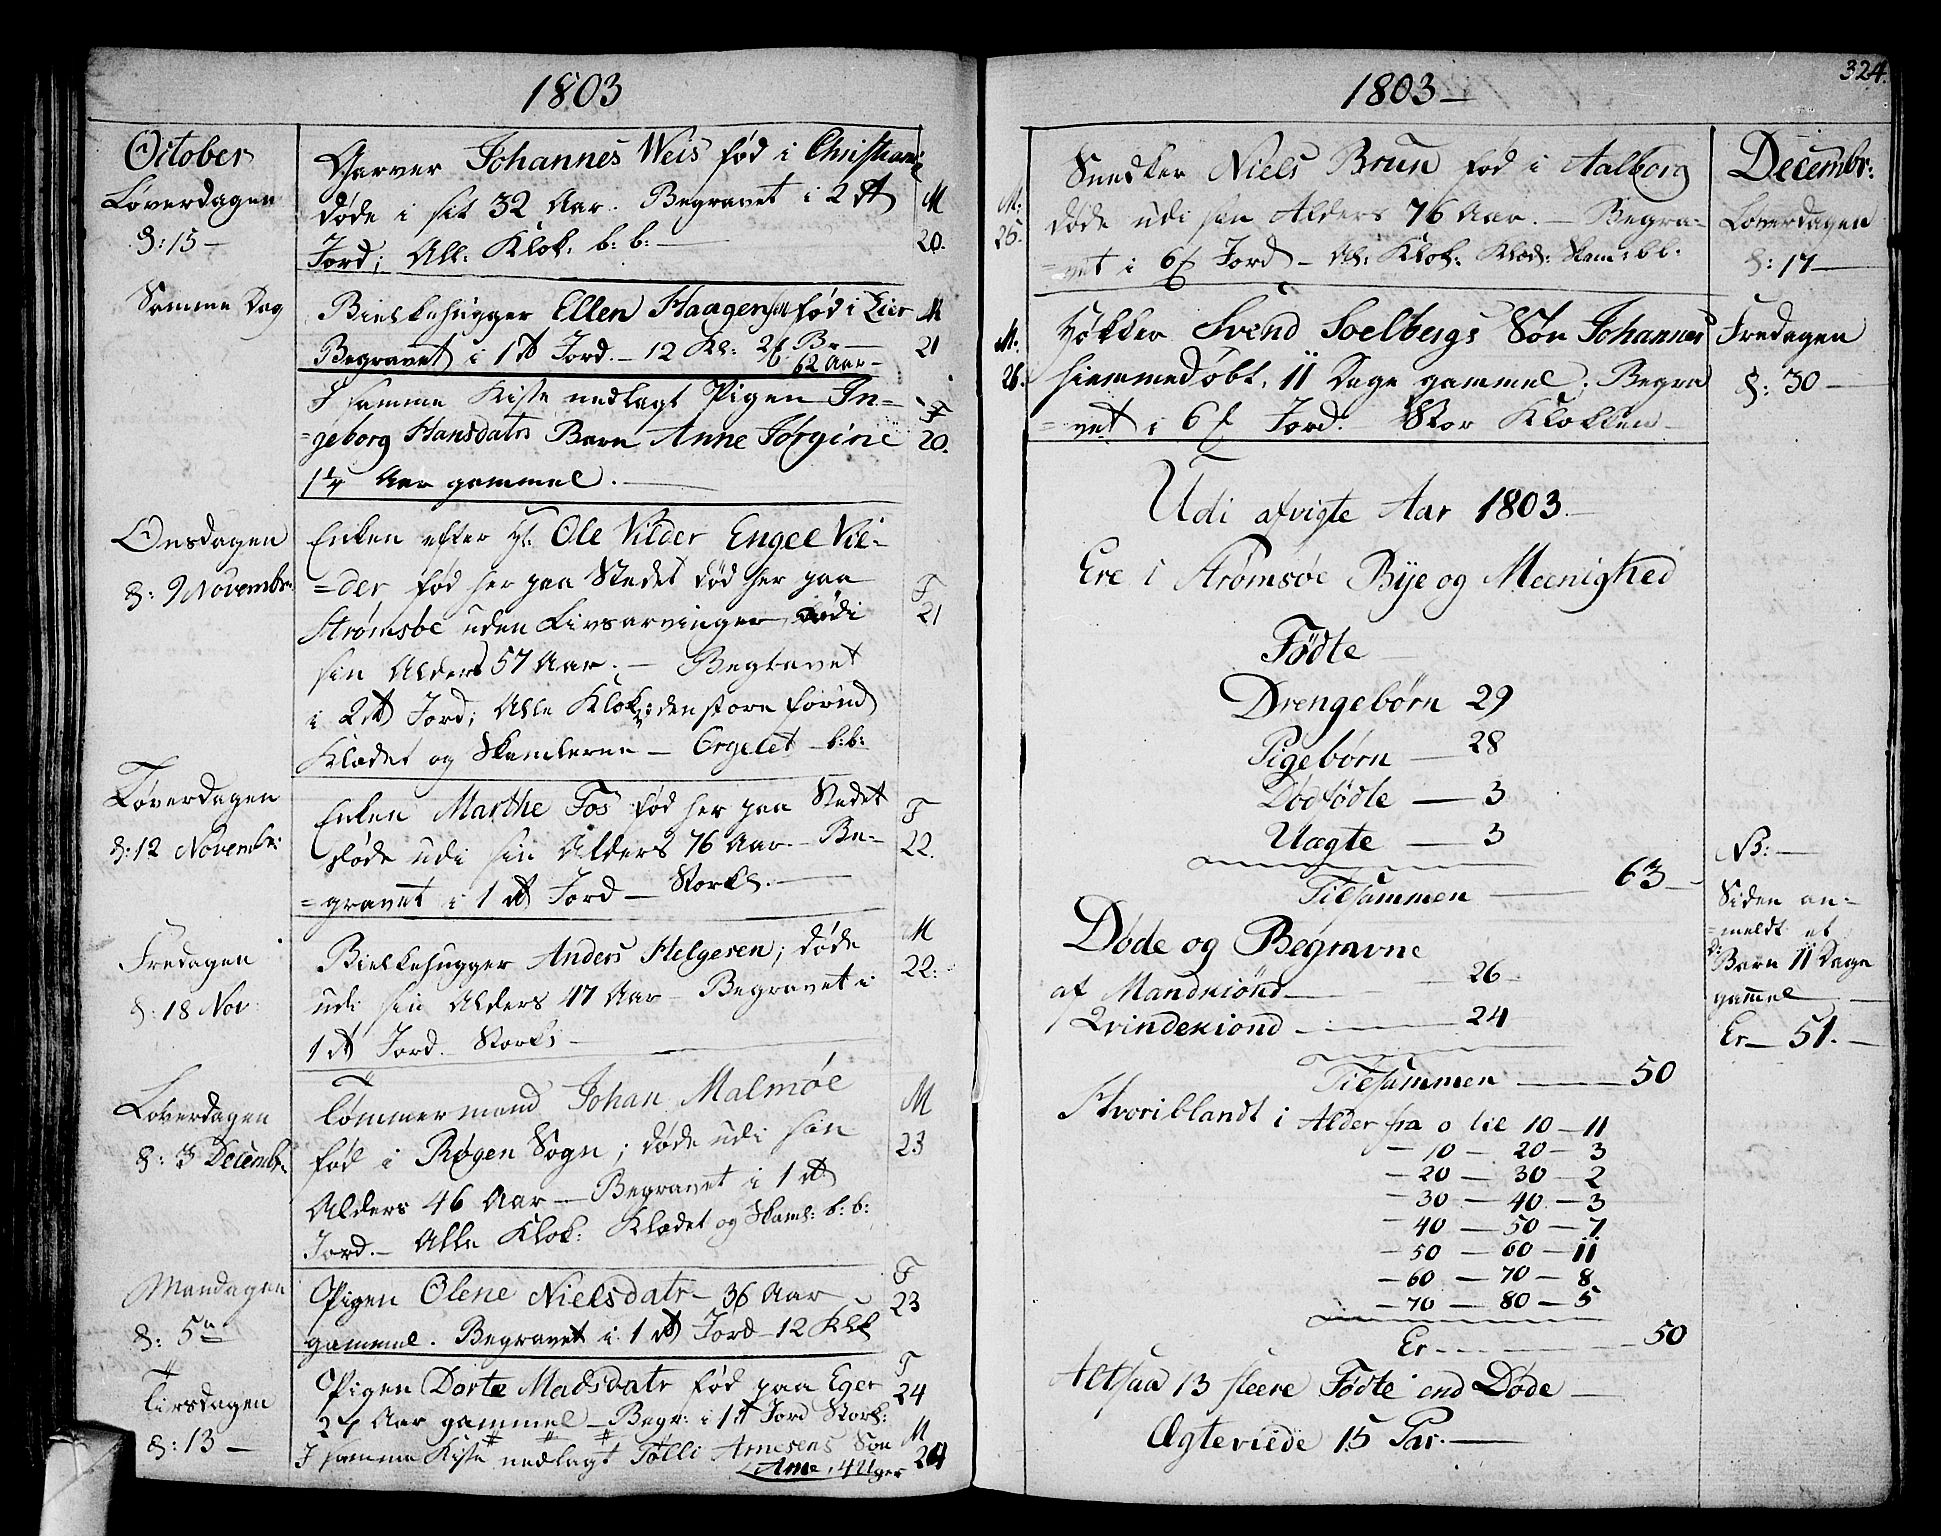 1803
October
Løverdagen
d: 15 –
Garver Johannes Weis fød i Christiania
døde i sit 32 Aar. Begravet i 2 rt
Jord; All: Klok. b: b: —
M
20.
Samme Dag
Bielkehugger Ellen Haagensen fød i Lier
Begravet i 1 rt Jord. – 12 Kl:
62 Aar –
M
21
I samme Kiste nedlagt Pigen In-
=geborg Hansdatrs Barn Anne Jørgine
1 1/4 Aar gammel. —
F
20.
Onsdagen
d: 9 Novembr:
Enken efter Ole Vilder Engel Vil-
=der fød her paa Stedet død her paa
Strømsøe uden Livsarvinger udi
sin Alders 57 Aar. — Begravet
i 2 rt Jord; Alle Klok: den store forud
Klædet og Skamlerne — Orgelet – b: b:
F
21
Løverdagen
d: 12 Novembr:
Enken Marthe Fos fød her paa Stedet
døde udi sin Alders 76 Aar. – Be-
=gravet i 1 rt Jord — Stor Kl. —
F
22.
Fredagen
d: 18 Nov:
Bielkehugger Anders Helgesen; døde
udi sin Alders 47 Aar – Begravet i
1 rt Jord. Stor Kl –
M
22:
Løverdagen
d: 3 Decembr.
Tømmermand Johan Malmøe
fød i Røgen Sogn; døde udi sin
Alders 46 Aar — Begravet i 1 rt
Jord. – Alle Klok: Klædet og Skaml: b: b:
M
23
Mandagen
d: 5te
Pigen Olene Nielsdatr – 36 Aar
gammel. Begravet i 1 rt Jord – 12 Kl
F
23
Tirsdagen
d: 13 —
Pigen Dorte Madsdatr fød paa Eger
27 Aar gammel — Begr: i 1 rt Jord Stor Kl:
F
24
I samme Kiste nedlagt Tølli Arnesens Søn
Arne, 4 Uger
M
24
1803 –
324.
M:
25.
Snedker Niels Brun fød i Aalborg
døde udi sin Alders 76 Aar. — Begra-
=vet i 6 ß Jord – Al: Klok: Klæd: Skam: b b.
Decembr:
Løverdagen
d: 17 —
M:
26.
Høkker Svend Soelbergs Søn Johannes
hiemmedøbt, 11 Dage gammel; Begra
=vet i 6 ß Jord. Stor Klokken –
Fredagen
d: 30 —
Udi afvigte Aar 1803. –
Ere i Strømsøe Bye og Meenighed
Fødte –
Drengebørn 29
Pigebørn — 28
Dødfødte — 3
Uægte — 3
Tilsammen — 63 –
Døde og Begravne
af Mandkiønd — 26 –
Qvindekiønd — 24
Tilsammen — 50
Hvoriblandt i Alder fra 0 til 10 – 11
– 10 – 20 – 3
– 20 – 30 – 2
– 30 – 40 – 3
– 40 – 50 – 7
– 50 – 60 – 11
– 60 – 70 – 8
– 70 – 80 – 5
Er — 50
Altsaa 13 fleere Fødte end Døde —
Ægteviede 15 Par. —
NB: —
Siden an-
=meldt et
D: Barn 11 Dage
gammel —
Er – 51. –